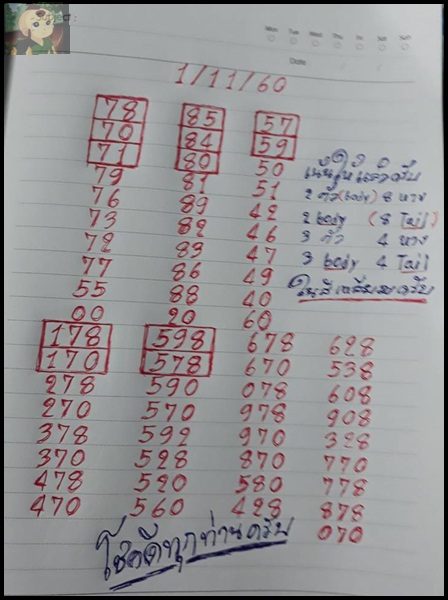 Subject:
Mon Tue Wed Thu Fri Sat Sun
Date
1/11/60
78 85 57
70 84 59
71 80 50
79 81 51
76 89 42
73 82 46
72 83 47
77 86 49
55 88 40
00 20 60
เน้นให้แล้วครับ
2 ตัว (body) 8 หาง
2 body (8 Tail)
3 ตัว 4 หาง
3 body 4 Tail
ในสี่เหลี่ยมครับ
178 598 678 628
170 578 670 538
278 590 078 608
270 570 978 908
378 592 970 328
370 528 870 770
478 520 580 778
470 560 428 878
070
โชคดีทุกท่านครับ